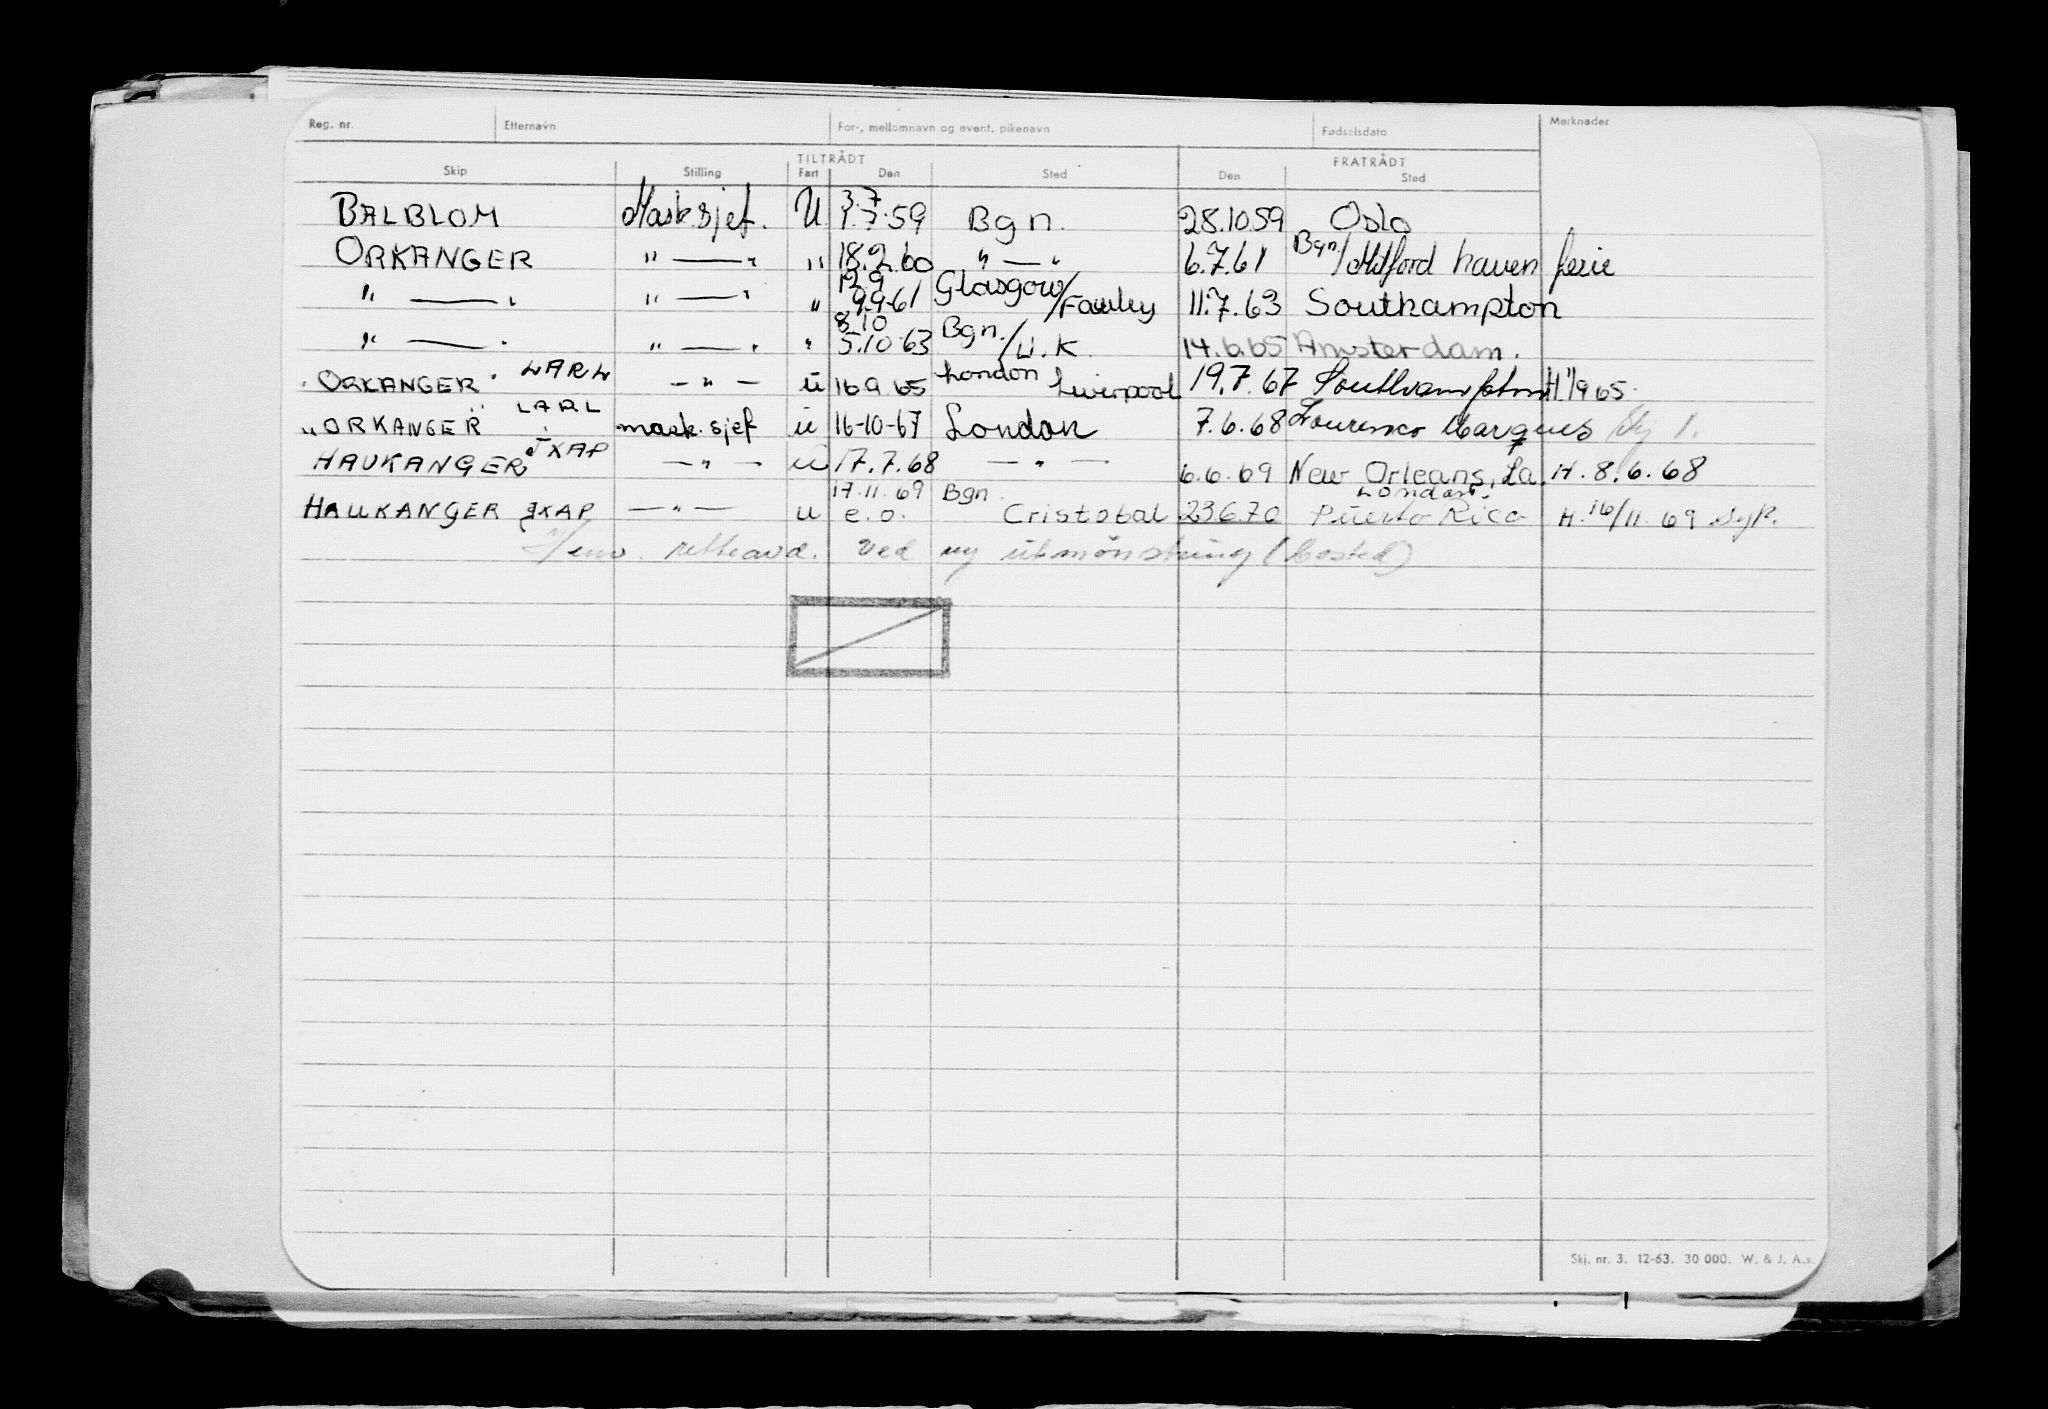 Reg. nr. Etternavn For-, mellomnavn og event. pikenavn Fødselsdato Merknader
TILTRÅDT FRATRÅDT
Skip Stilling Fart Den Sted Den Sted
BALBLOM Mask.sjef. U 3.7 1.7.59 Bgn. 28.10.59 Oslo
ORKANGER " — " " 18.2.60 " — " 6.7.61 Bgn./Milford haven ferie
" — " " — " " 12.9 9.9.61 Glasgow/Fawley 11.7.63 Southampton
" — " " — " " 8.10 5.10.63 Bgn./U.K. 14.6.65 Amsterdam.
ORKANGER LARL — " — ü 16.9.65 London Liverpool 19.7.67 Southampton H. 1/9 65.
" ORKANGER " LARL mask.sjef ü 16-10-67 London 7.6.68 Lourenco Marques
HAUKANGER JXAP — " — ü 17.7.68 — " — 6.6.69 New Orleans, La. H. 8.6.68
HAUKANGER JXAP — " — u 17.11.69 e.o. Bgn. Cristobal 23.6.70 London. Puerto Rico H. 16/11.69
ved ny utmönstring (bosted)
Skj. nr. 3. 12-63. 30 000. W. & J. A.s.